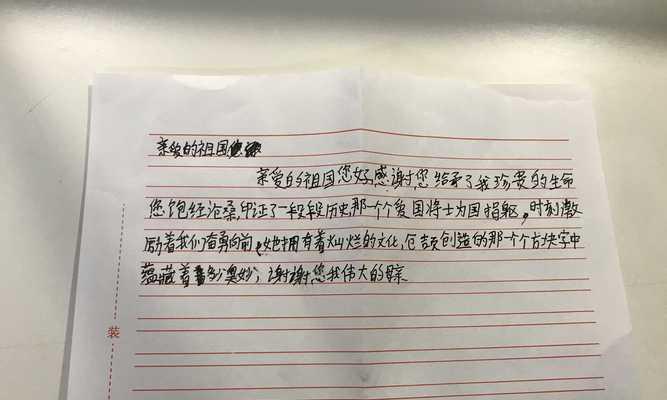 亲爱的祖国
亲爱的祖国您好,感谢您给予了我珍贵的生命
您饱经沧桑,印证了一段段历史那一个个爱国将士为国捐躯,时刻激
励着我们奋勇向前,她拥有着灿烂的文化,仓颉创造的那一个个方块字中
蕴藏着多少奥妙,谢谢您我伟大的母亲
装